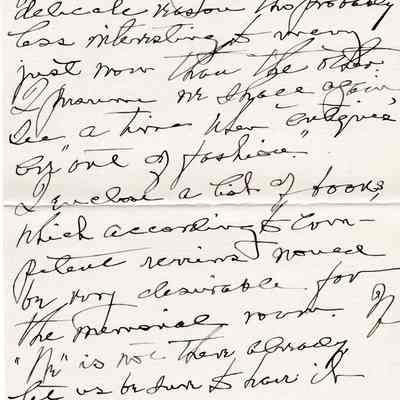 delicate reason tho' probably
less interesting to many
just now than the other
I presume we shall again
see a time when
"out of fashion."
I enclose a list of books,
which according to com-
petent reviews would
be very desirable for
the memorial room. If
" is not there already
let us be sure to have it